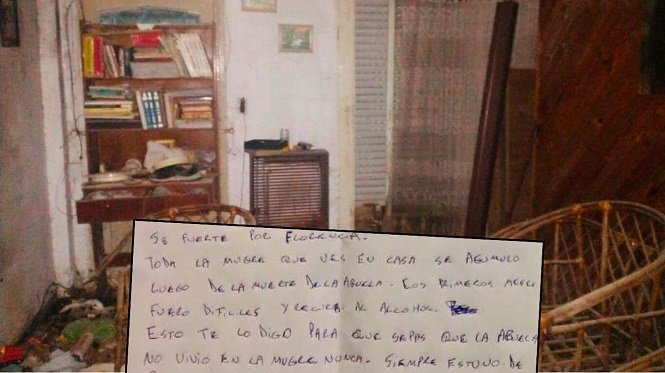 SE FUERTE POR FLORENCIA.
TODA LA MUGRE QUE VES EN CASA SE ACUMULO
LUEGO DE LA MUERTE DE LA ABUELA. LOS PRIMEROS MESES
FUERO DIFICILES Y RECURRI AL ALCOHOL
ESTO TE LO DIGO PARA QUE SEPAS QUE LA ABUELA
NO VIVIO EN LA MUGRE NUNCA. SIEMPRE ESTUVO DE